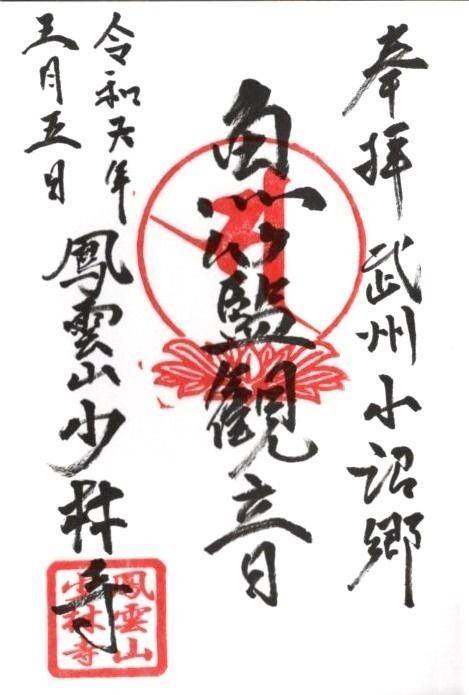 奉拝 武州小沼郷
魚籃観音
鳳雲山少林寺
令和元年
五月五日
鳳雲山
少林寺